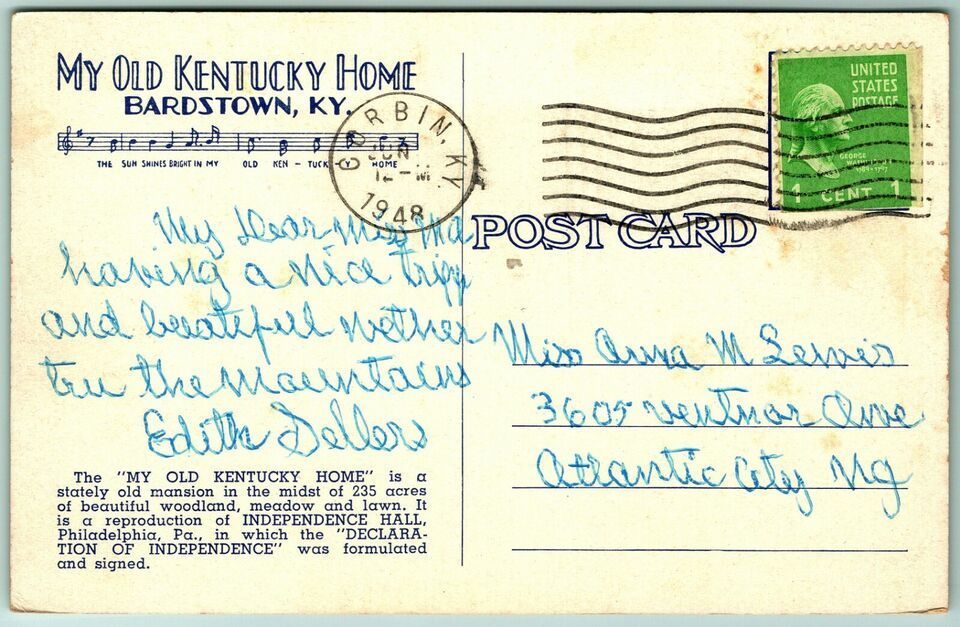 MY OLD KENTUCKY HOME
BARDSTOWN, KY.
THE SUN SHINES BRIGHT IN MY OLD KEN - TUCK - Y HOME
CORBIN, KY
JUN
12 - M
1948
UNITED
STATES
POSTAGE
GEORGE
WASHINGTON
1 CENT 1
POST CARD
My Dear Miss
having a nice tripp
and beautiful wether
tru the mountains
Edith Sellers
Miss Anna M Lewis
3605 ventnor Ave
Atlantic City NJ
The "MY OLD KENTUCKY HOME" is a
stately old mansion in the midst of 235 acres
of beautiful woodland, meadow and lawn. It
is a reproduction of INDEPENDENCE HALL,
Philadelphia, Pa., in which the "DECLARA-
TION OF INDEPENDENCE" was formulated
and signed.